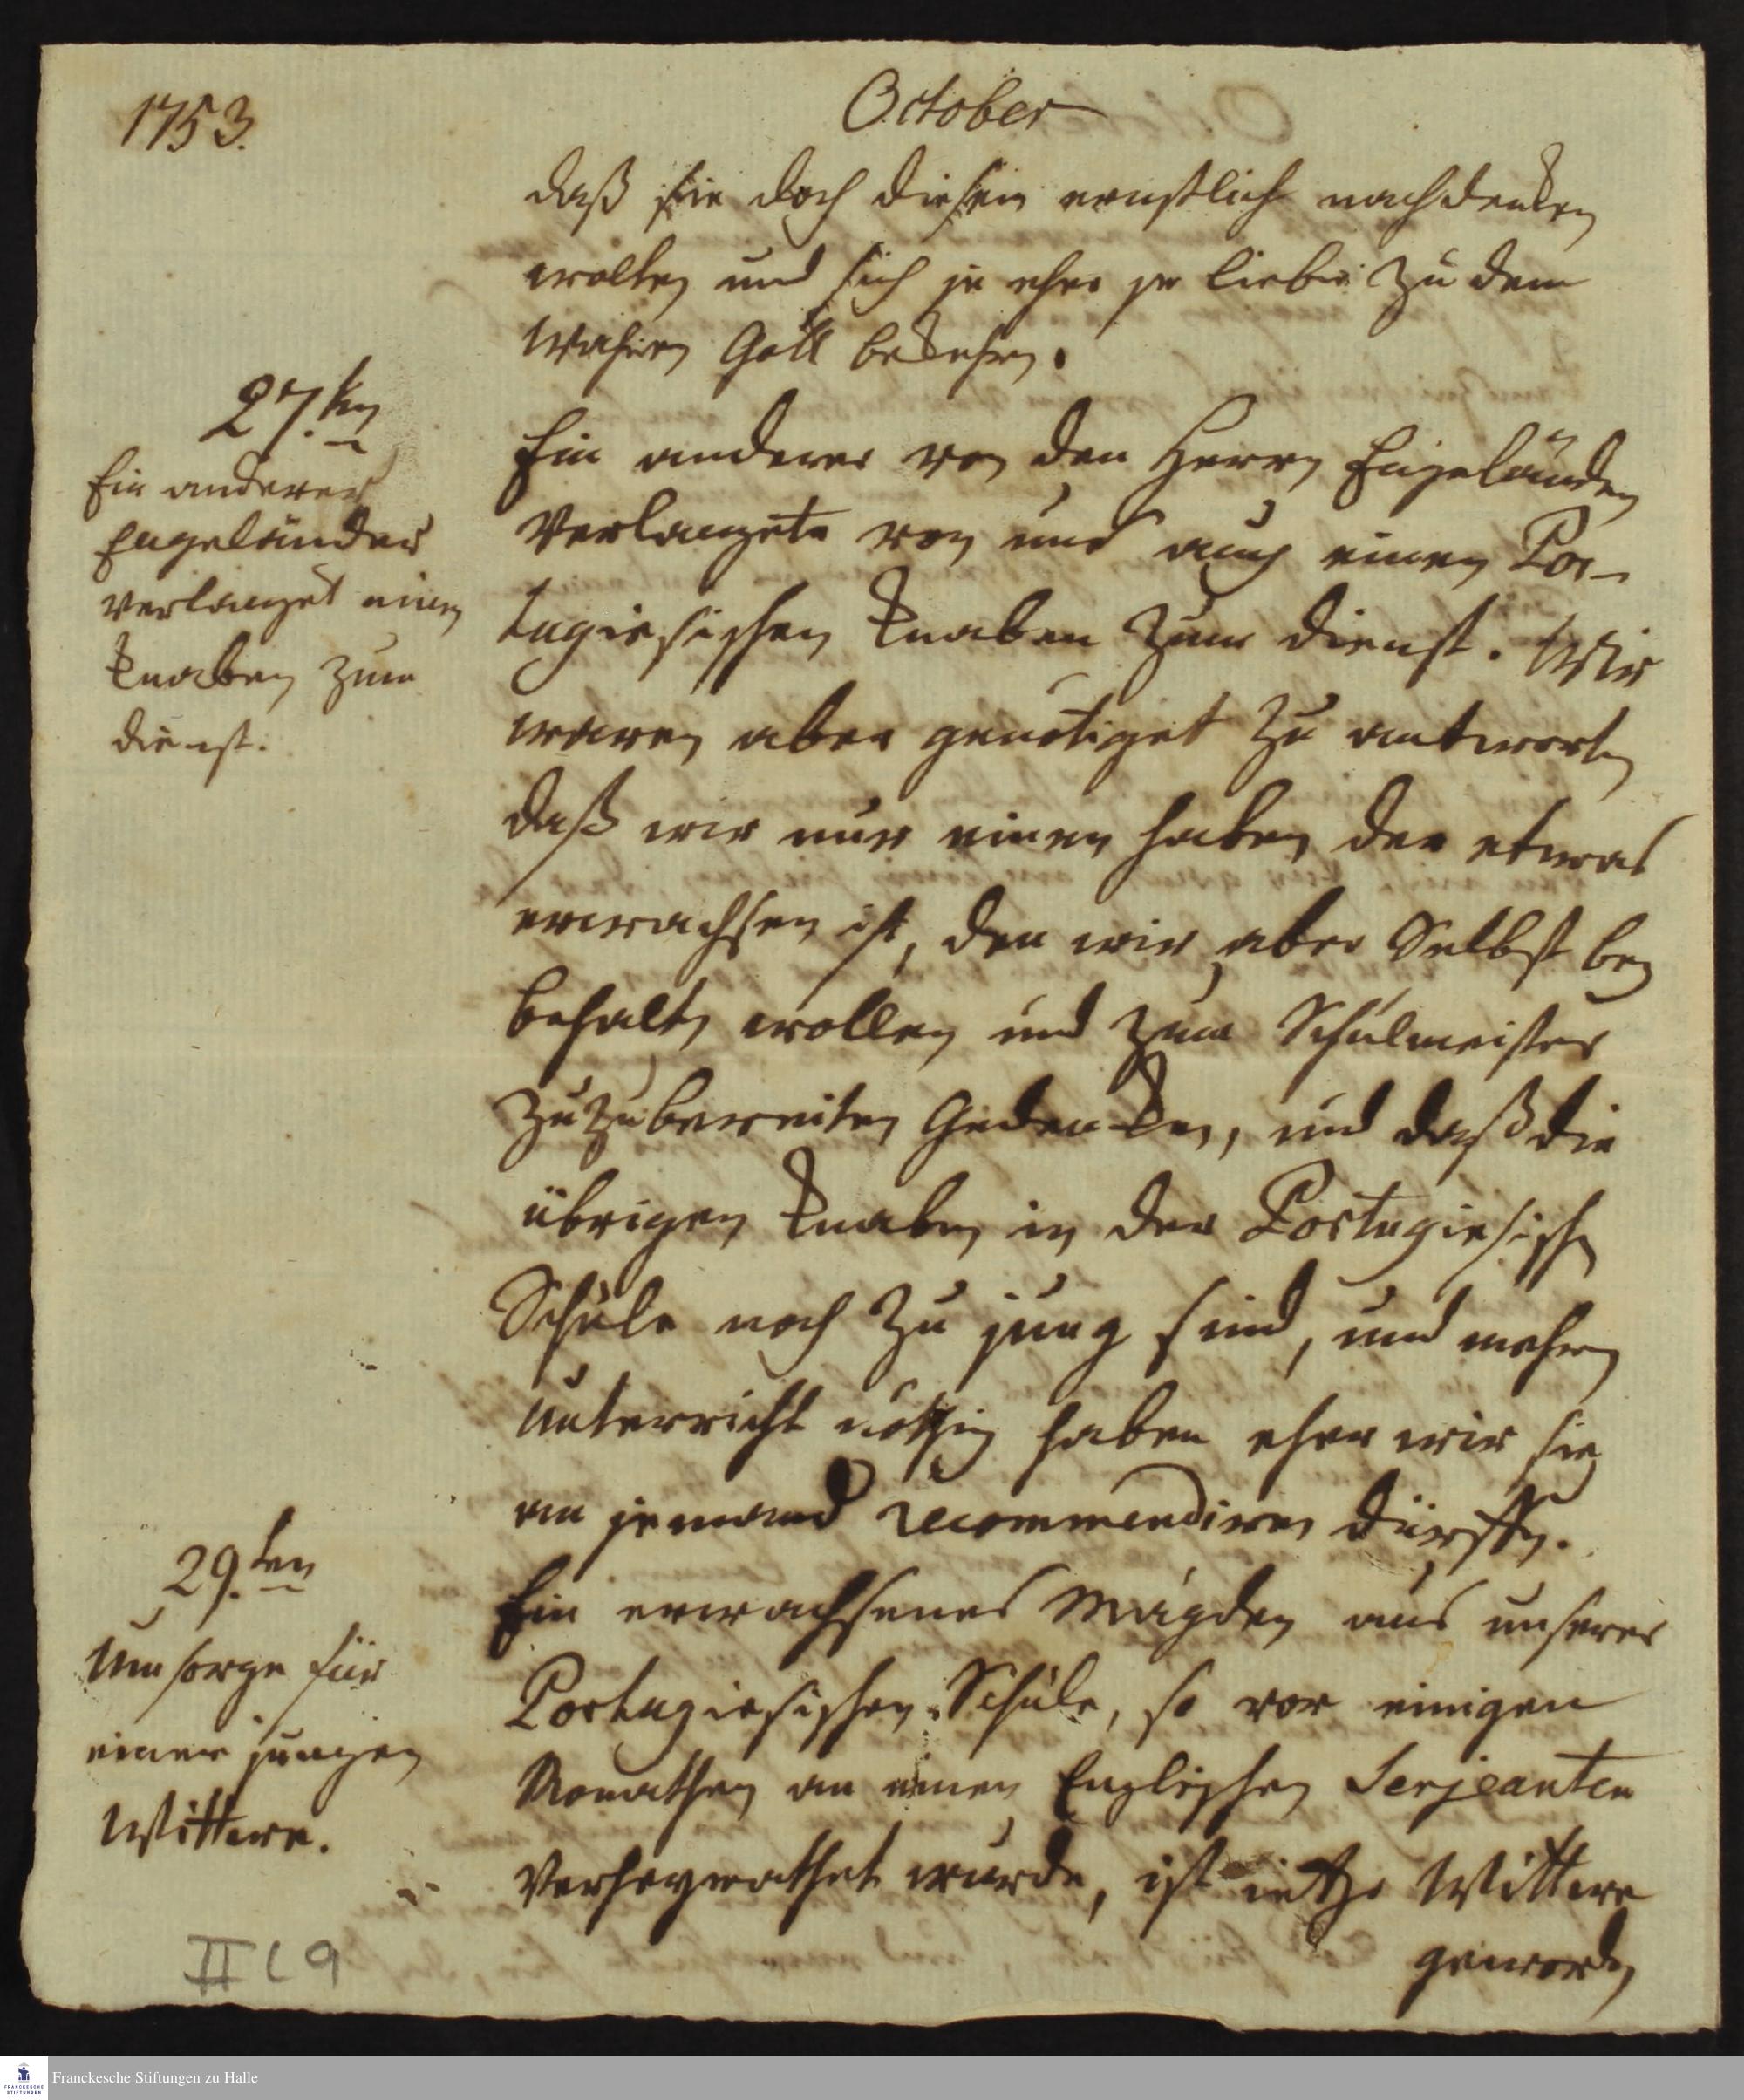 1753.
October
daß sie doch diesen ernstlich nachdencken
wolten und sich je eher je lieber zu dem
wahren Gott bekehren.
27.ten
Ein anderer
Engeländer
verlanget einen
Knaben zum
dienst.
Ein anderer von den Herrn Engeländern
verlangete von uns auch einen Por-
tugiesischen Knaben zum dienst. Wir
waren aber genötiget zu antworten
daß wir nur einen haben der etwas
erwachsen ist, den wir aber selbst bey
behalten wollen und zum Schulmeister
zuzubereiten Gedencken, und daß die
übrigen Knaben in der Portugiesischen
Schule noch zu jung sind, und mehrern
unterricht nöthig haben eher wir sie
an jemand recommendiren dürfften.
29.ten
Um sorge für
einer jungen
Wittwe.
Ein erwachsenes Mägden aus unserer
Portugiesischen Schule, so vor einigen
Monathen an einen Englischen Serjeanten
verheyrathet wurde, ist ietzo Wittwe
geworden
II C 9
Franckesche Stiftungen zu Halle